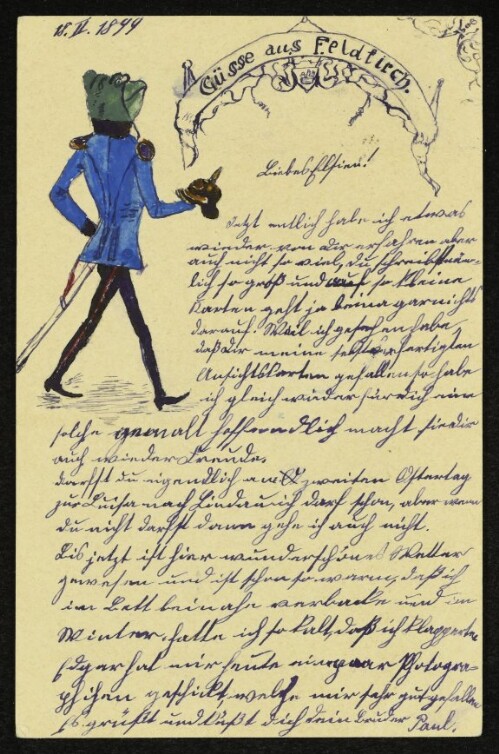 15.II.1899
Güsse aus Feldkirch.
Liebes Elsien!
Jetzt entlich habe ich etwas
wieder von dir erfahren aber
auch nicht so viel, du schreibst näm-
lich so groß und auf so kleine
Karten geht ja beina garnichts
darauf. Weil ich gesehen habe,
daß dir meine selbstverfertigten
Ansichtskarten gefallen so habe
ich gleich wieder für dich eine
solche gemalt hoffendlich macht sie dir
auch wieder Freude.
darfst du eigendlich am zweiten Ostertag
zur Luisa nach Lindau ich darf schon, aber wenn
du nicht darfst dann gehe ich auch nicht.
Bis jetzt ist hier wunderschönes Wetter
gewesen und ist schon so warm, daß ich
im Bett beinahe verbacke und im
Winter hatte ich so kalt, daß ich klapperte
Edgar hat mir heute ein paar Photogra-
phihen geschickt, welche mir sehr gut gefallen
Es grüßt und küßt dich dein Bruder Paul.